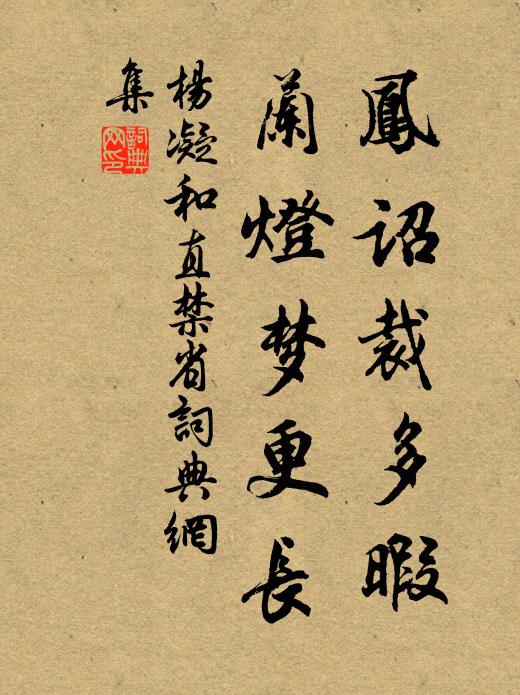 鳳詔裁多暇
蘭燈梦更長
楊凝和直禁省詞典網
集
詞典
网印